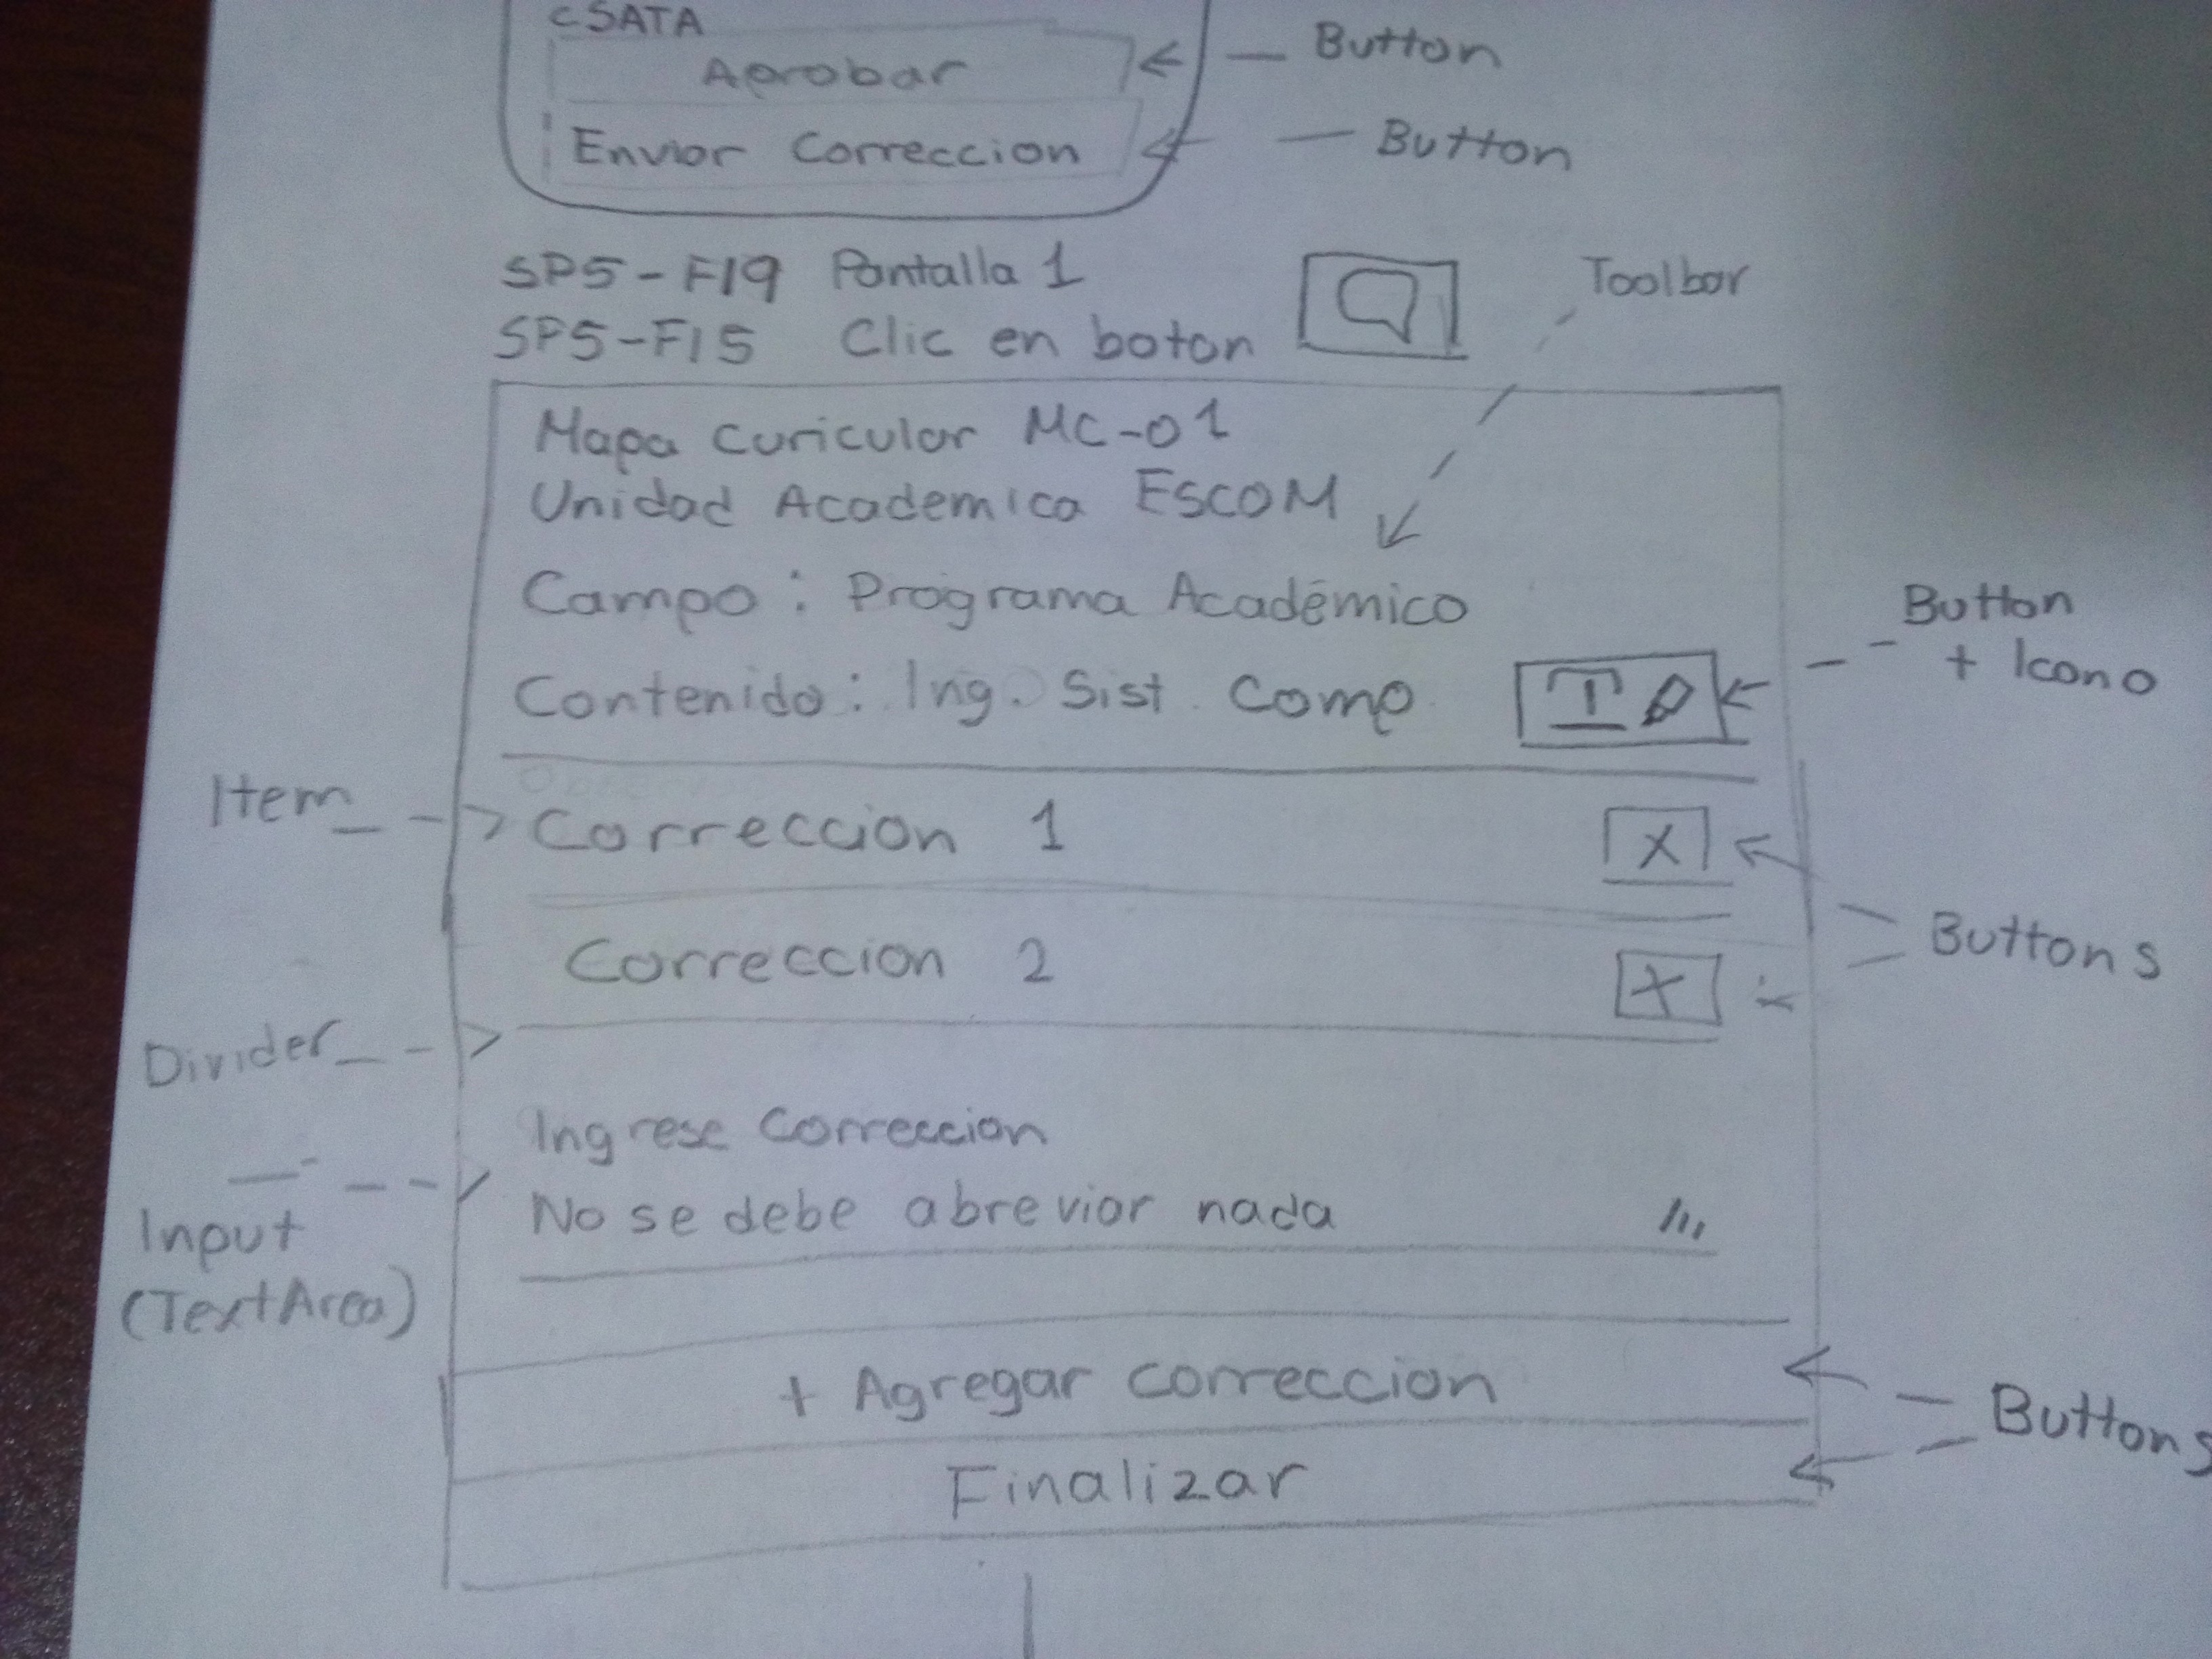 CSATA
Aprobar
Button
Enviar Correccion
Button
SP5-F19 Pantalla 1
SP5-F15 Clic en boton
Toolbar
Mapa curicular MC-01
Unidad Academica ESCOM
Campo: Programa Académico
Contenido: Ing. Sist. Comp
T
Button
+ Icono
Item
Correccion 1
X
Correccion 2
X
Buttons
Divider
Ingrese Correccion
No se debe abreviar nada
Input
(TextArea)
+ Agregar correccion
Finalizar
Buttons